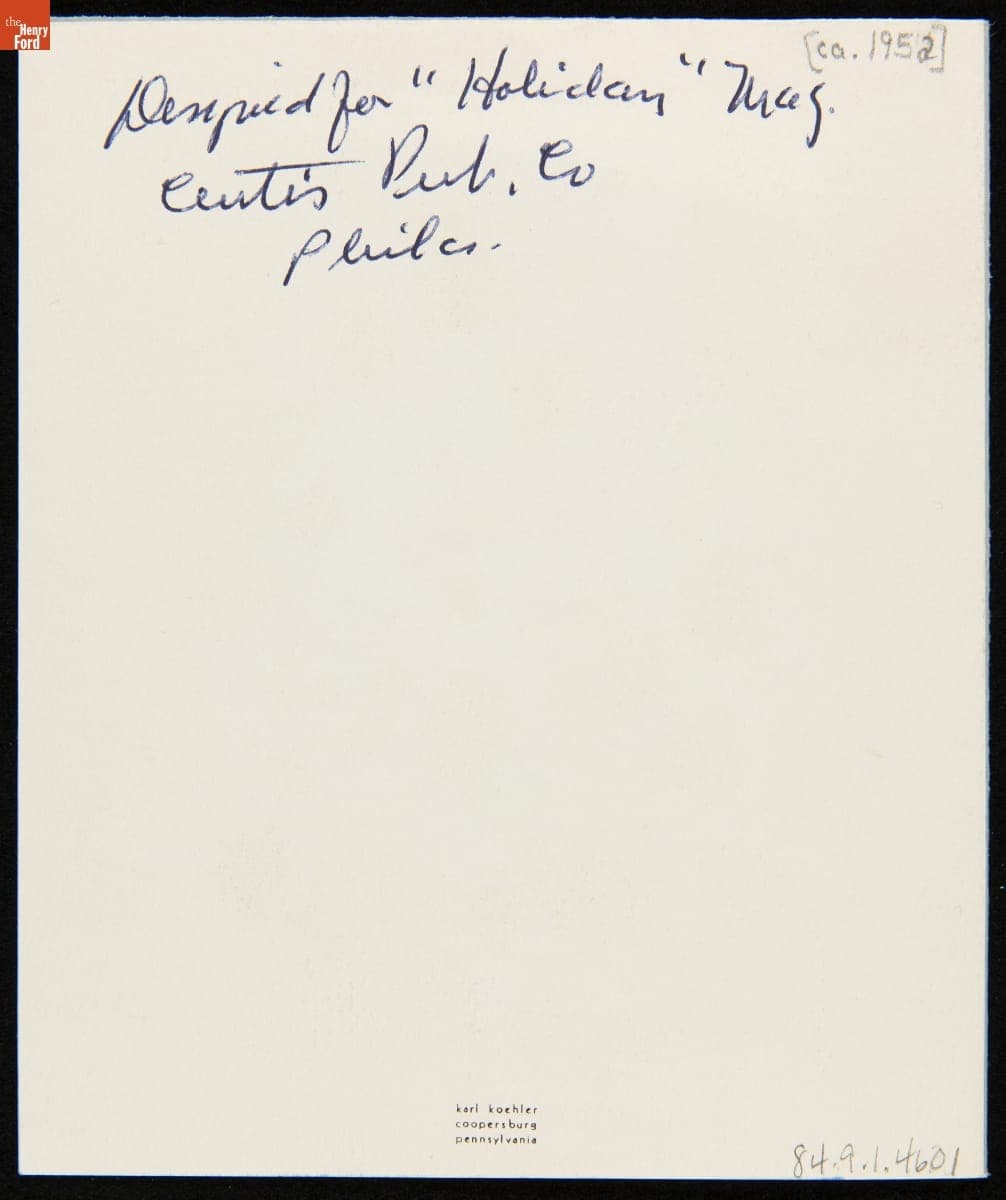 the
Henry
Ford
[ca. 1952]
Designed for "Holiday" Mag.
Curtis Pub. Co
Phila.
karl koehler
coopersburg
pennsylvania
84.9.1.4601